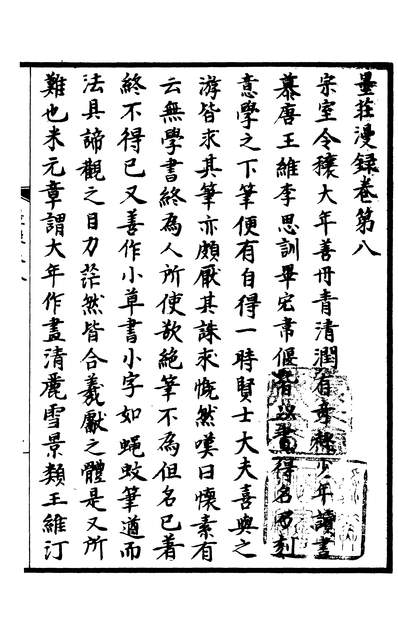 墨莊漫録卷第八
宗室令穰大年善丹青清潤有少年讀書
慕唐王維李思訓畢宏韋偃皆以畫得名而刻
意學之下筆便有自得一時賢士大夫喜與之
游皆求其筆亦頗厭其誅求慨然嘆曰懷素有
云無學書終為人所使欲絶筆不為但名已著
終不得已又善作小草書小字如蠅蚊筆遒而
法具諦觀之目力茫然皆合羲獻之體是又所
難也米元章謂大年作畫清麗雪景類王維汀